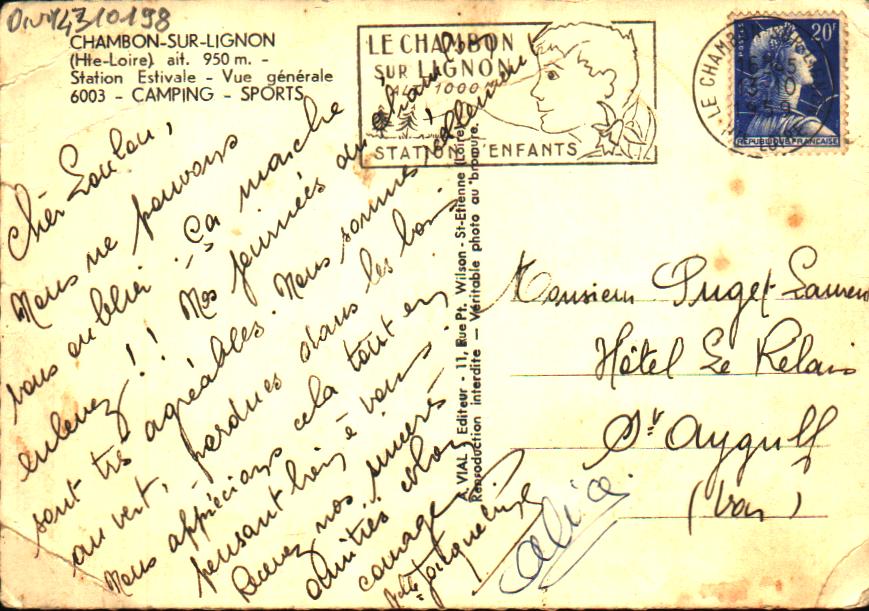 14310198
CHAMBON-SUR-LIGNON
(Hte-Loire) alt. 950 m. -
Station Estivale - Vue générale
6003 - CAMPING - SPORTS
LE CHAMBON
SUR LIGNON
ALT 1000
STATION D'ENFANTS
LE CHAMB
20F
POSTES
REPUBLIQUE FRANCAISE
Cher Loulou,
Nous ne pouvons
vous oublier. Ça marche
enlevez!! Nos journées au
sont très agréables. Nous sommes
au vert, perdues dans les bois
Nous apprécions cela tout en
pensant bien à vous.
Recevez nos sincères
amitiés
courage
Jacqueline
Alice
A. VIAL, Editeur - 11, Rue Pt. Wilson - St-Etienne (Loire)
Reproduction interdite — Véritable photo au bromure.
Monsieur Puget Laurent
Hôtel Le Relais
St Aygulf
(Var)